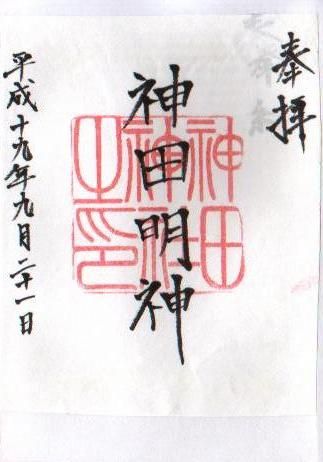 奉拝
神田明神
神田
神社
之印
平成十九年九月二十一日